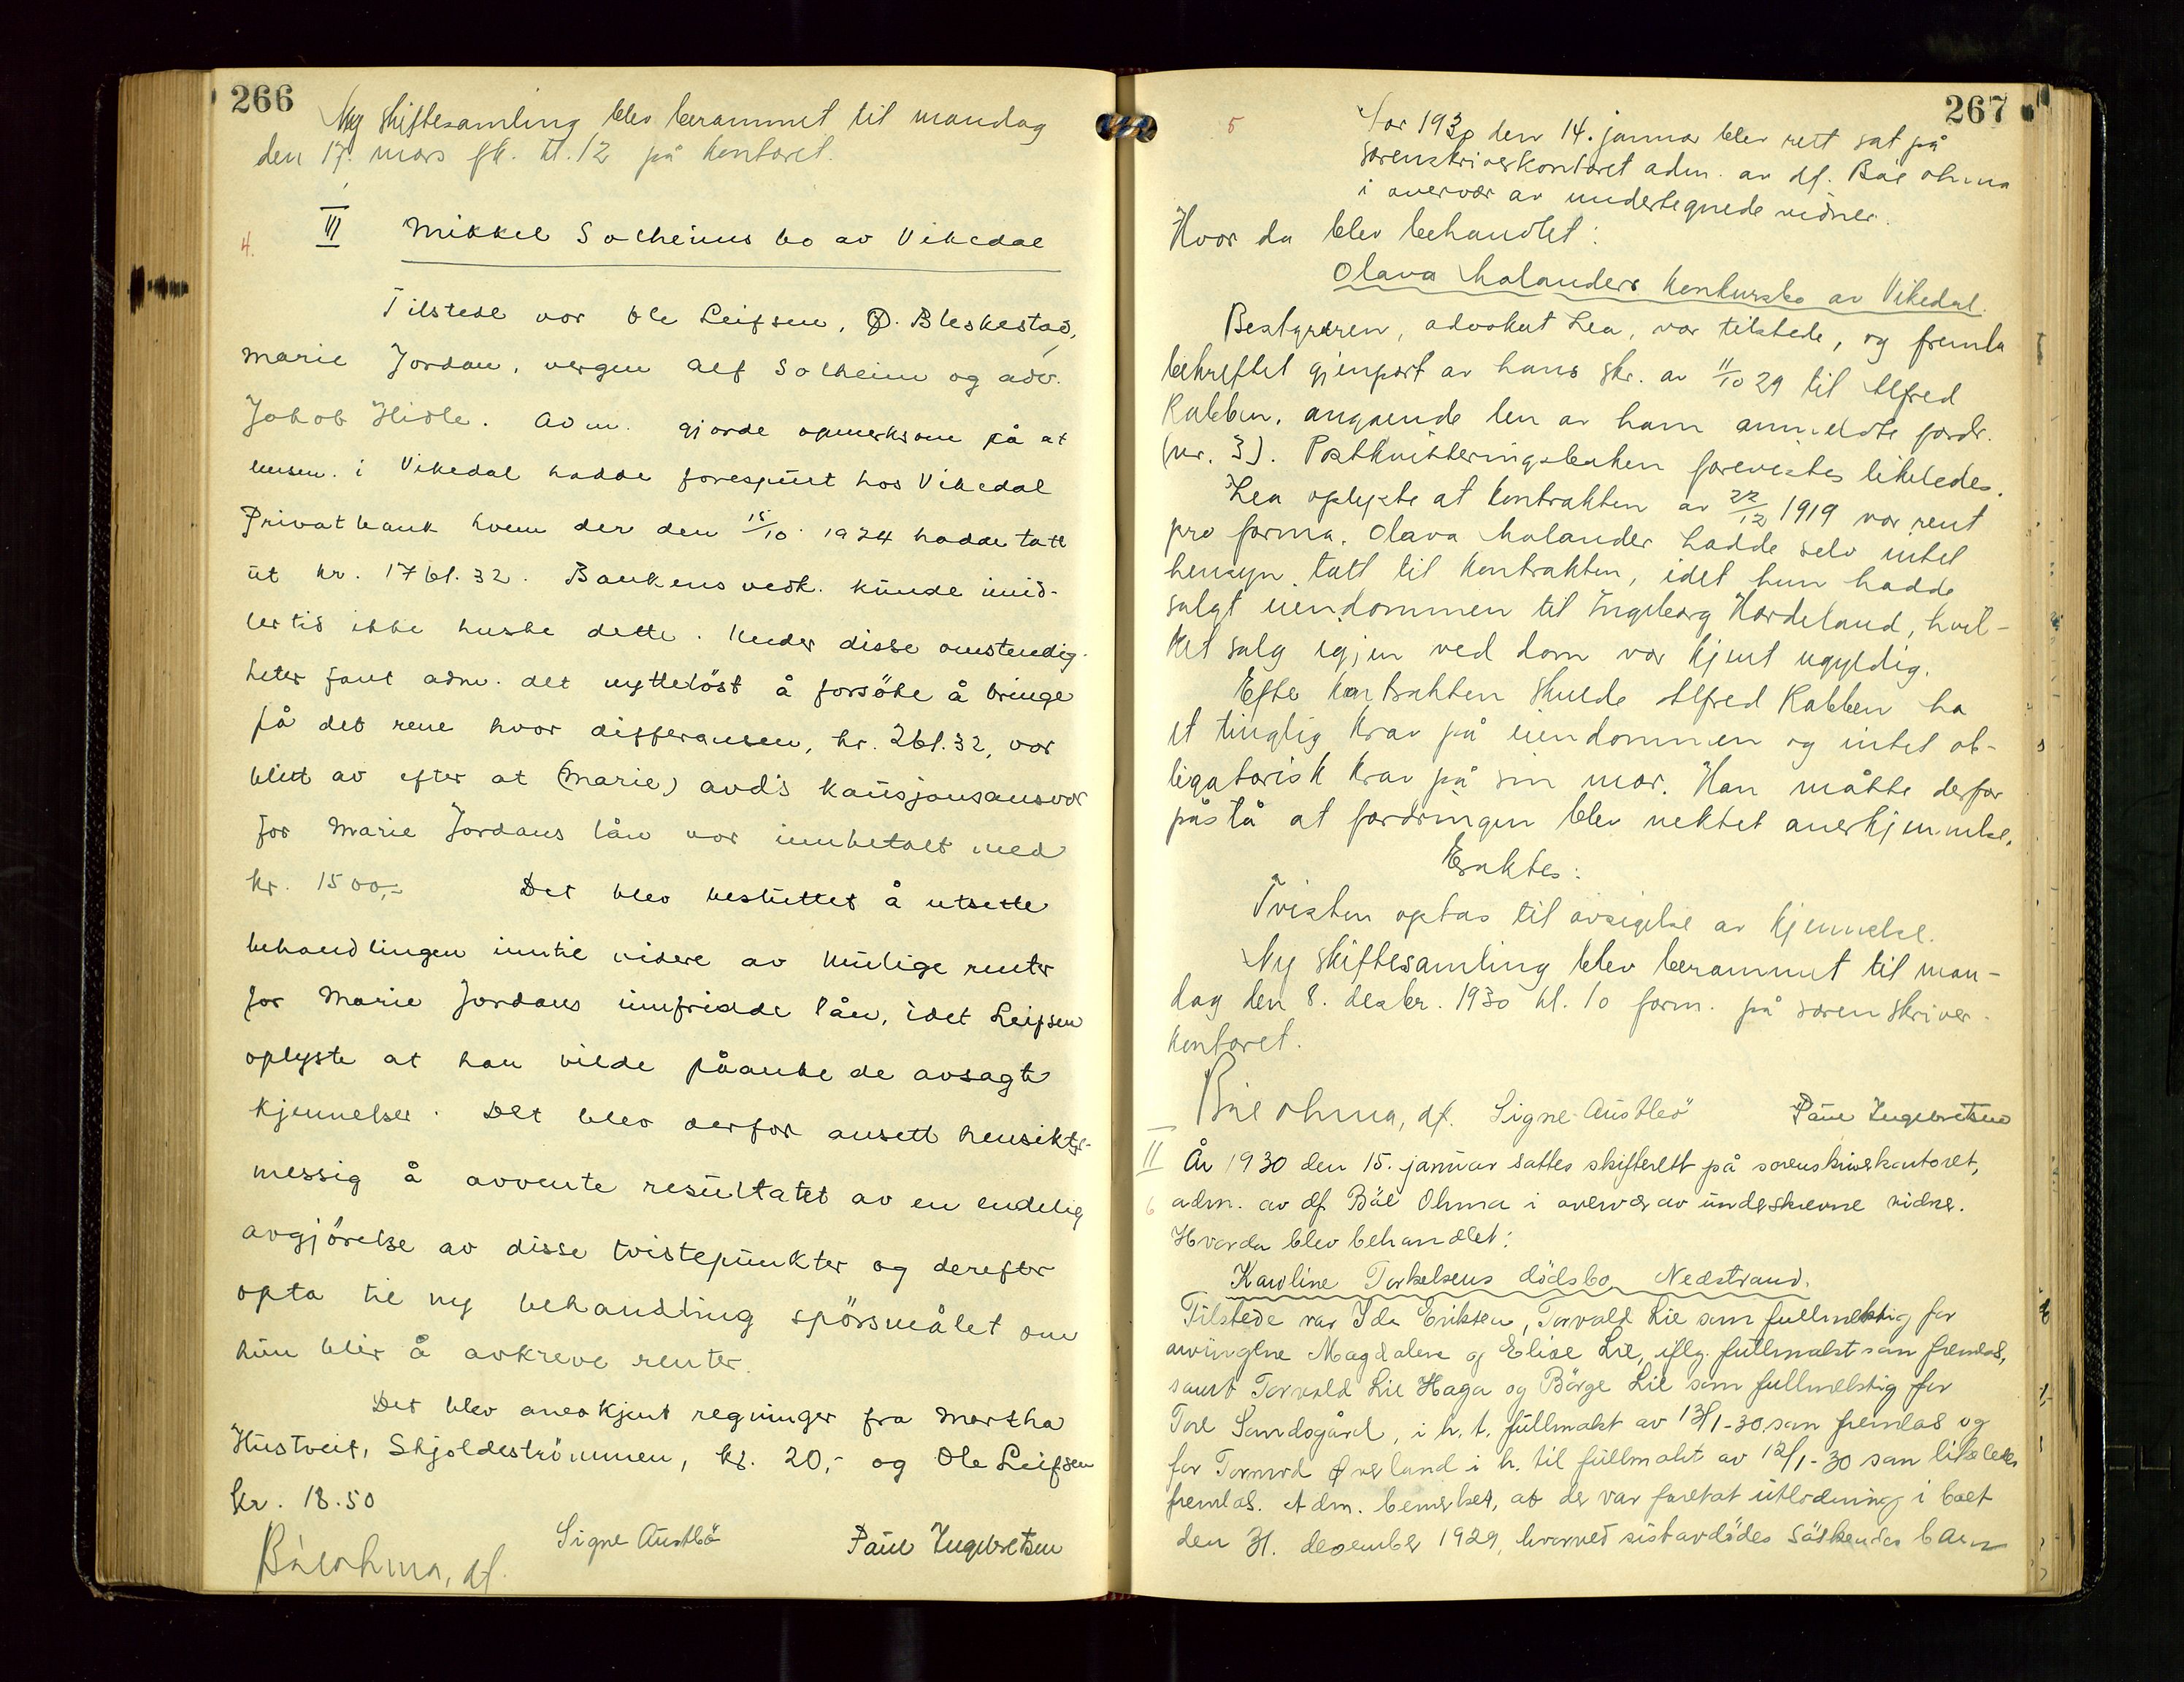 266
Ny skiftesamling blev berammet til mandag
den 17. mars fk. kl. 12 på kontoret.
4. III Mikkel Solheims bo av Vikedal
Tilstede var Ole Leifsen, O. Bleskestad,
Marie Jordan, vergen Alf Solheim og adv.
Jakob Hidle. Adm. gjorde opmerksom på at
lensm. i Vikedal hadde forespurt hos Vikedal
Privatbank hvem der den 15/10 1924 hadde tatt
ut kr. 1761.32. Bankens vedk. kunde imid-
lertid ikke huske dette. Under disse omstendig-
heter fant adm. det nytteløst å forsøke å bringe
på det rene hvor differansen, kr. 261.32, var
blitt av efter at (Marie) avd's kausjonsansvar
for Marie Jordans lån var innbetalt med
kr. 1500,- Det blev besluttet å utsette
behandlingen inntil videre av mulige renter
for Marie Jordans innfridde lån, idet Leifsen
oplyste at han vilde påanke de avsagte
kjennelser. Det blev derfor ansett hensikts-
messig å avvente resultatet av en endelig
avgjørelse av disse tvistepunkter og derefter
opta til ny behandling spørsmålet om
hun blir å avkreve renter.
Det blev anerkjent regninger fra Martha
Hustveit, Skjoldestrømmen, kr. 20,- og Ole Leifsen
kr. 18.50
Båe Ohma, df. Signe Austbø Paul Ingebretsen
267
5 År 1930 den 14. januar blev rett sat på
sorenskriverkontoret adm. av df. Båe Ohma
i overvær av undertegnede vidner.
Hvor da blev behandlet:
Olava Malanders konkursbo av Vikedal.
Bestyreren, advokat Lea, var tilstede, og fremla
bekreftet gjenpart av hans skr. av 11/10 29 til Alfred
Rabben, angående den av ham anmeldte fordr.
(nr. 3). Postkvitteringsboken forevistes likeledes.
Lea oplyste at kontrakten av 22/12 1919 var rent
pro forma. Olava Malander hadde selv intet
hensyn tatt til kontrakten, idet hun hadde
solgt eiendommen til Ingeborg Hordeland, hvil-
ket salg igjen ved dom var kjent ugyldig.
Efter kontrakten skulde Alfred Rabben ha
et tinglig krav på eiendommen og intet ob-
ligatorisk krav på sin mor. Han måtte derfor
påstå at fordringen blev nektet anerkjennelse.
Esaktes:
Tvisten optas til avsigelse av kjennelse.
Ny skiftesamling blev berammet til man-
dag den 8. desbr. 1930 kl. 10 form. på sorenskriver-
kontoret.
Båe Ohma, df. Signe Austbø Paul Ingebretsen
II År 1930 den 15. januar sattes skifterett på sorenskriverkontoret,
6 adm. av df. Båe Ohma i overvær av underskrevne vidner.
Hvorda blev behandlet:
Karoline Torkelsens dødsbo, Nedstrand.
Tilstede var Ida Eriksen, Torvald Lie som fullmektig for
arvingene Magdalene og Elise Lie, iflg. fullmakt som fremlas,
samt Torvald Lie Haga og Børge Lie som fullmektig for
Tore Sandsgård, i h. t. fullmakt av 13/1-30 som fremlas og
for Tormod Øverland i h. til fullmakt av 12/1-30 som likeledes
fremlas. Adm. bemerket, at der var foretat utlodning i boet
den 31. desember 1929, hvorved sistavdødes søskendes barn